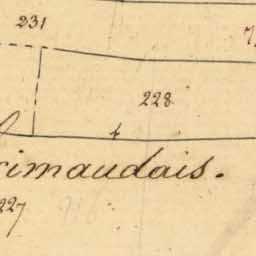 231
228
rimaudais.
227